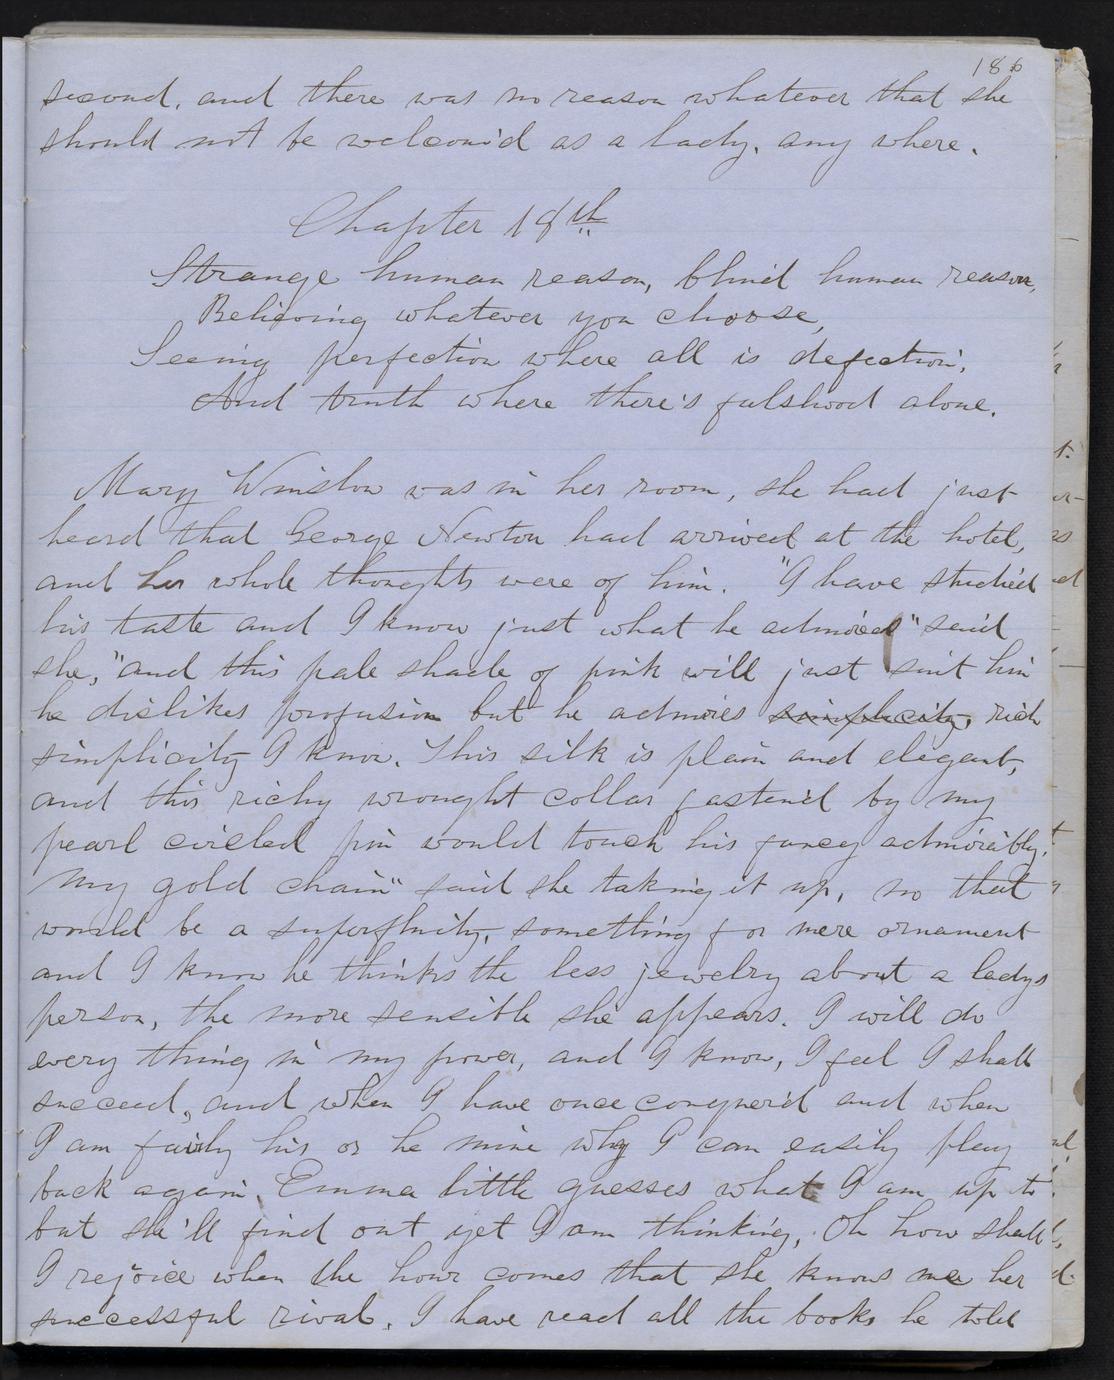 186
second, and there was no reason whatever that she
should not be welcom'd as a lady, any where.
Chapter 18th
Strange human reason, blind human reason,
Believing whatever you choose,
Seeing perfection where all is defection,
And truth where there's falshood alone.
Mary Winslow was in her room, she had just
heard that George Newton had arrived at the hotel,
and her whole thoughts were of him. "I have studied
his taste and I know just what he admires" said
she, "and this pale shade of pink will just suit him
he dislikes profusion but he admires simplicity, rich
simplicity I know. This silk is plain and elegant,
and this richy wrought collar fasten'd by my
pearl circled pin would touch his fancy admirably.
My gold chain" said she taking it up, no that
would be a superfluity, something for mere ornament
and I know he thinks the less jewelry about a ladys
person, the more sensible she appears. I will do
every thing in my power, and I know, I feel I shall
succeed, and when I have once conquer'd and when
I am fairly his or he mine why I can easily play
back again. Emma little guesses what I am up to
but she'll find out yet I am thinking, Oh how shall
I rejoice when the hour comes that she knows me her
successful rival. I have read all the books he told